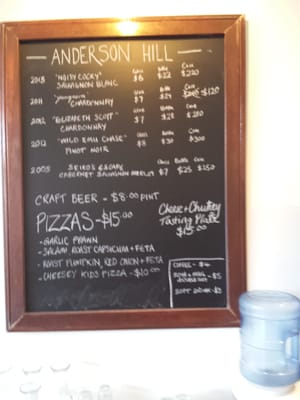 ANDERSON HILL
Glass Bottle Case
2013 "NOISY COCKY" $6 $22 $220
SAUVIGNON BLANC
2011 CHARDONNAY $7
2012 "ELIZABETH SCOTT" $7 $28 $280
CHARDONNAY
2012 "WILD EMU CHASE" $8 $30 $300
PINOT NOIR
Glass Bottle Case
2005 $7 $25 $250
CABERNET SAUVIGNON MERLOT
CRAFT BEER - $8.00 PINT
PIZZAS - $15.00
- GARLIC PRAWN
- SALAMI ROAST CAPSICUM + FETA
- ROAST PUMPKIN, RED ONION + FETA
- CHEESEY KIDS PIZZA - $10.00
Cheese + Chutney
Tasting Plate
$15.00
COFFEE - $4
- $5
SOFT DRINK - $2